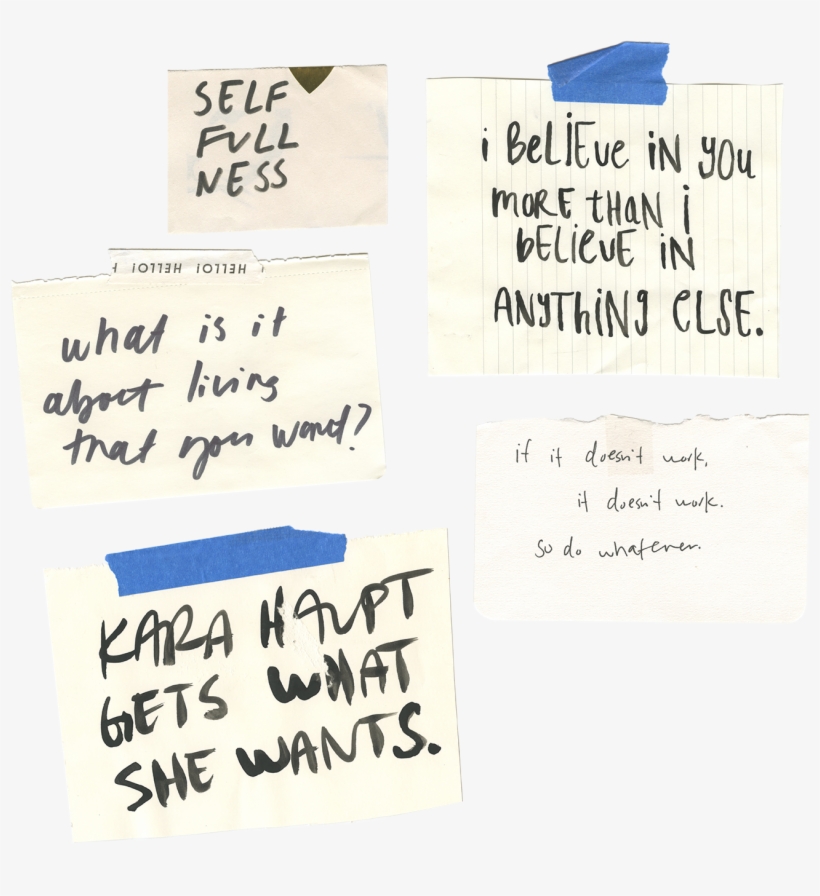 SELF
FULL
NESS
i BELiEVE iN YOU
MORE THAN i
BELiEVE iN
ANYTHiNG ELSE.
HELLO! HELLO! H
what is it
about living
that you want?
if it doesn't work,
it doesn't work.
so do whatever.
KARA HAUPT
GETS WHAT
SHE WANTS.